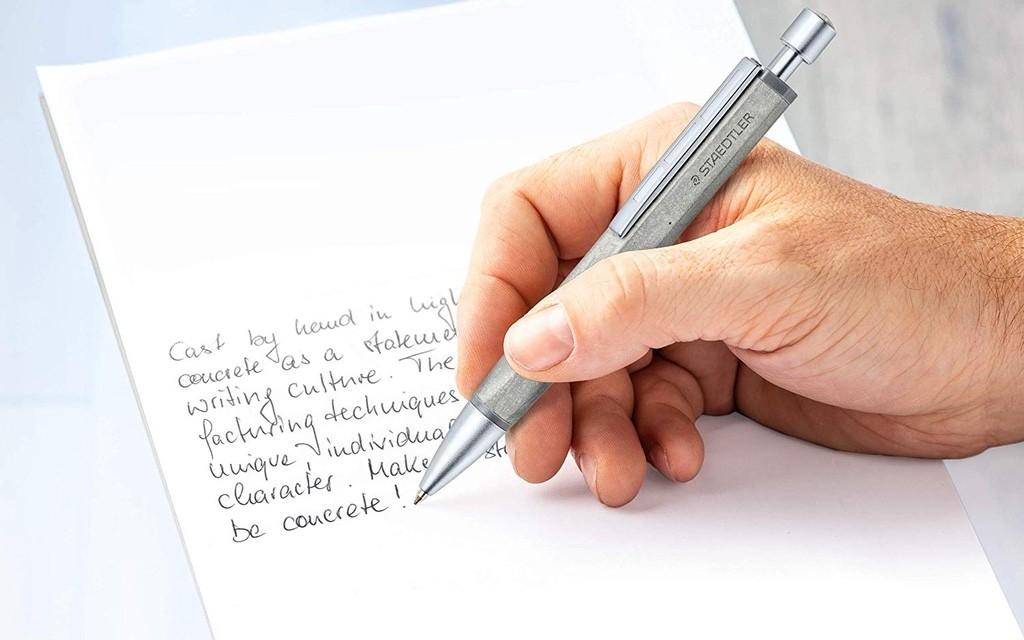 STAEDTLER
Cast by hand in high
concrete as a stateme
writing culture. The
facturing techniques
unique, individual
character. Make st
be concrete!